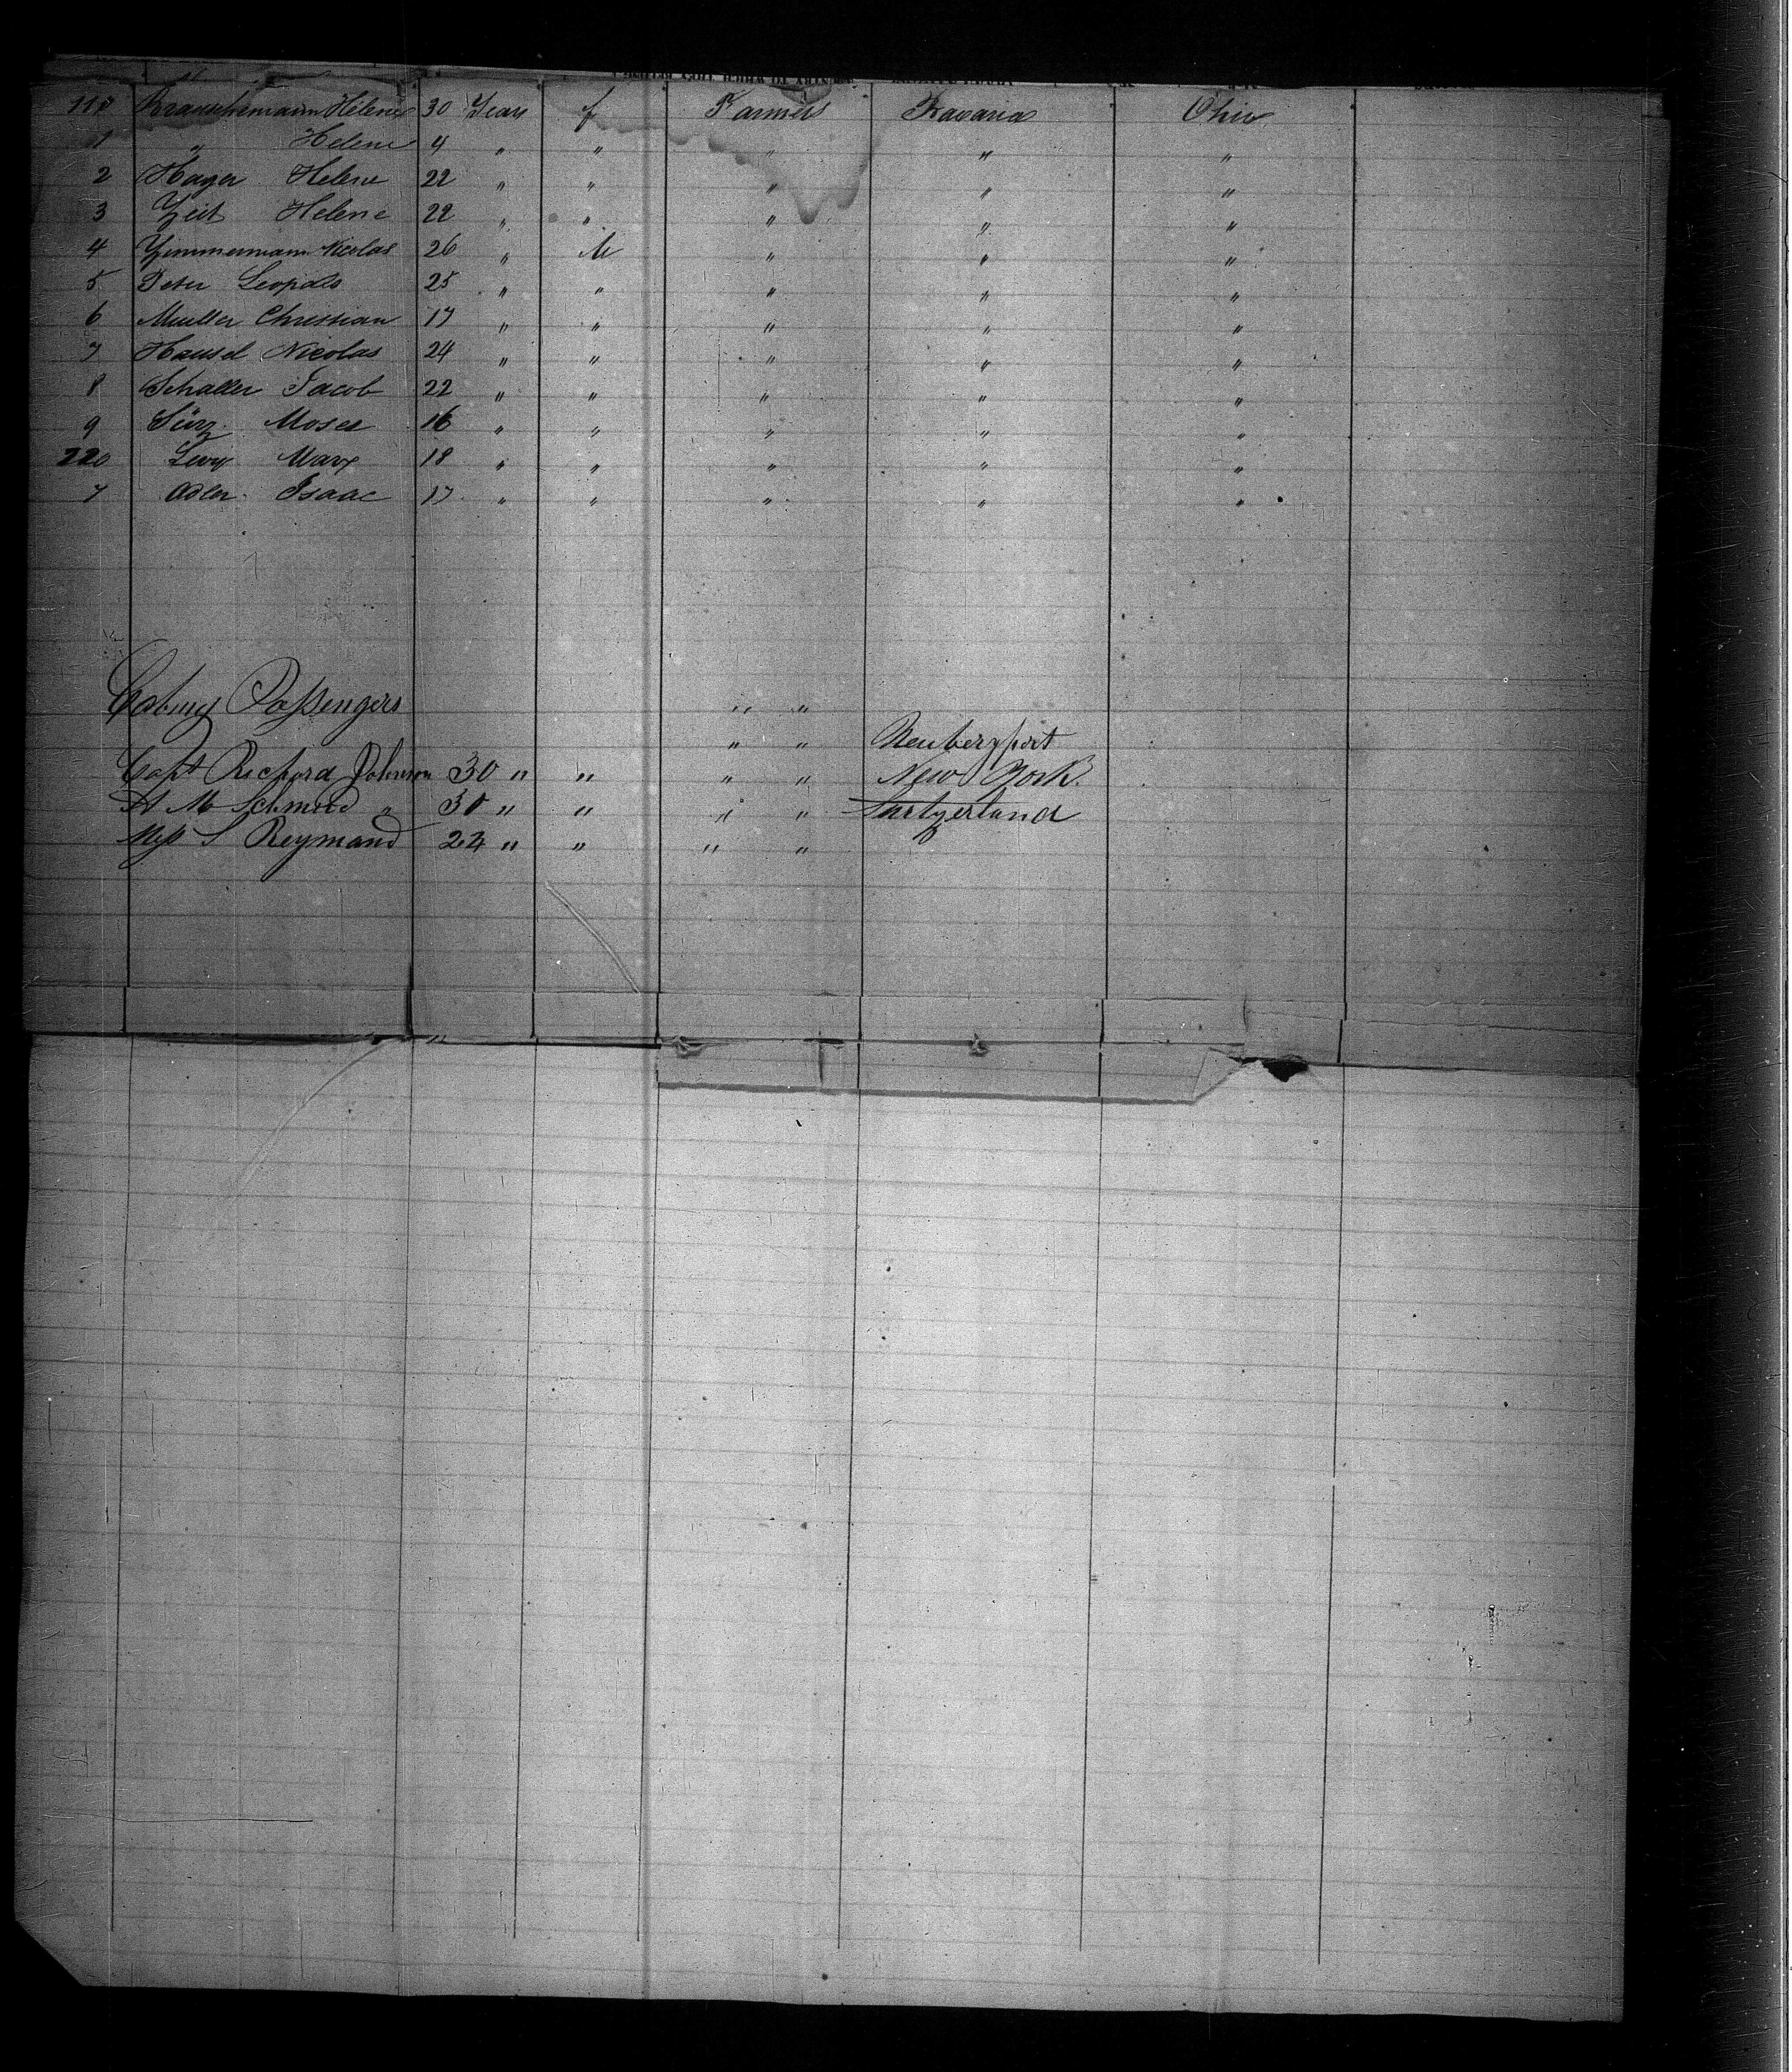 110 Krauschemann Helene 30 Years f Farmers Bavaria Ohio
1 " Helene 4 " " " " "
2 Hager Helene 22 " " " " "
3 Zeit Helene 22 " " " " "
4 Zimmermann Nicolas 26 " M " " "
5 Peter Leopold 25 " " " " "
6 Mueller Christian 17 " " " " "
7 Hausel Nicolas 24 " " " " "
8 Schaller Jacob 22 " " " " "
9 Moses 16 " " " " "
220 Levy Marx 18 " " " " "
Adler Isaac 17 " " " " "
Passengers " "
" " Neuberyport
Capt Richard Johnson 30 " " " " New York.
H M Schmid " 30 " " " " Switzerland
S Reymand 24 " " " "